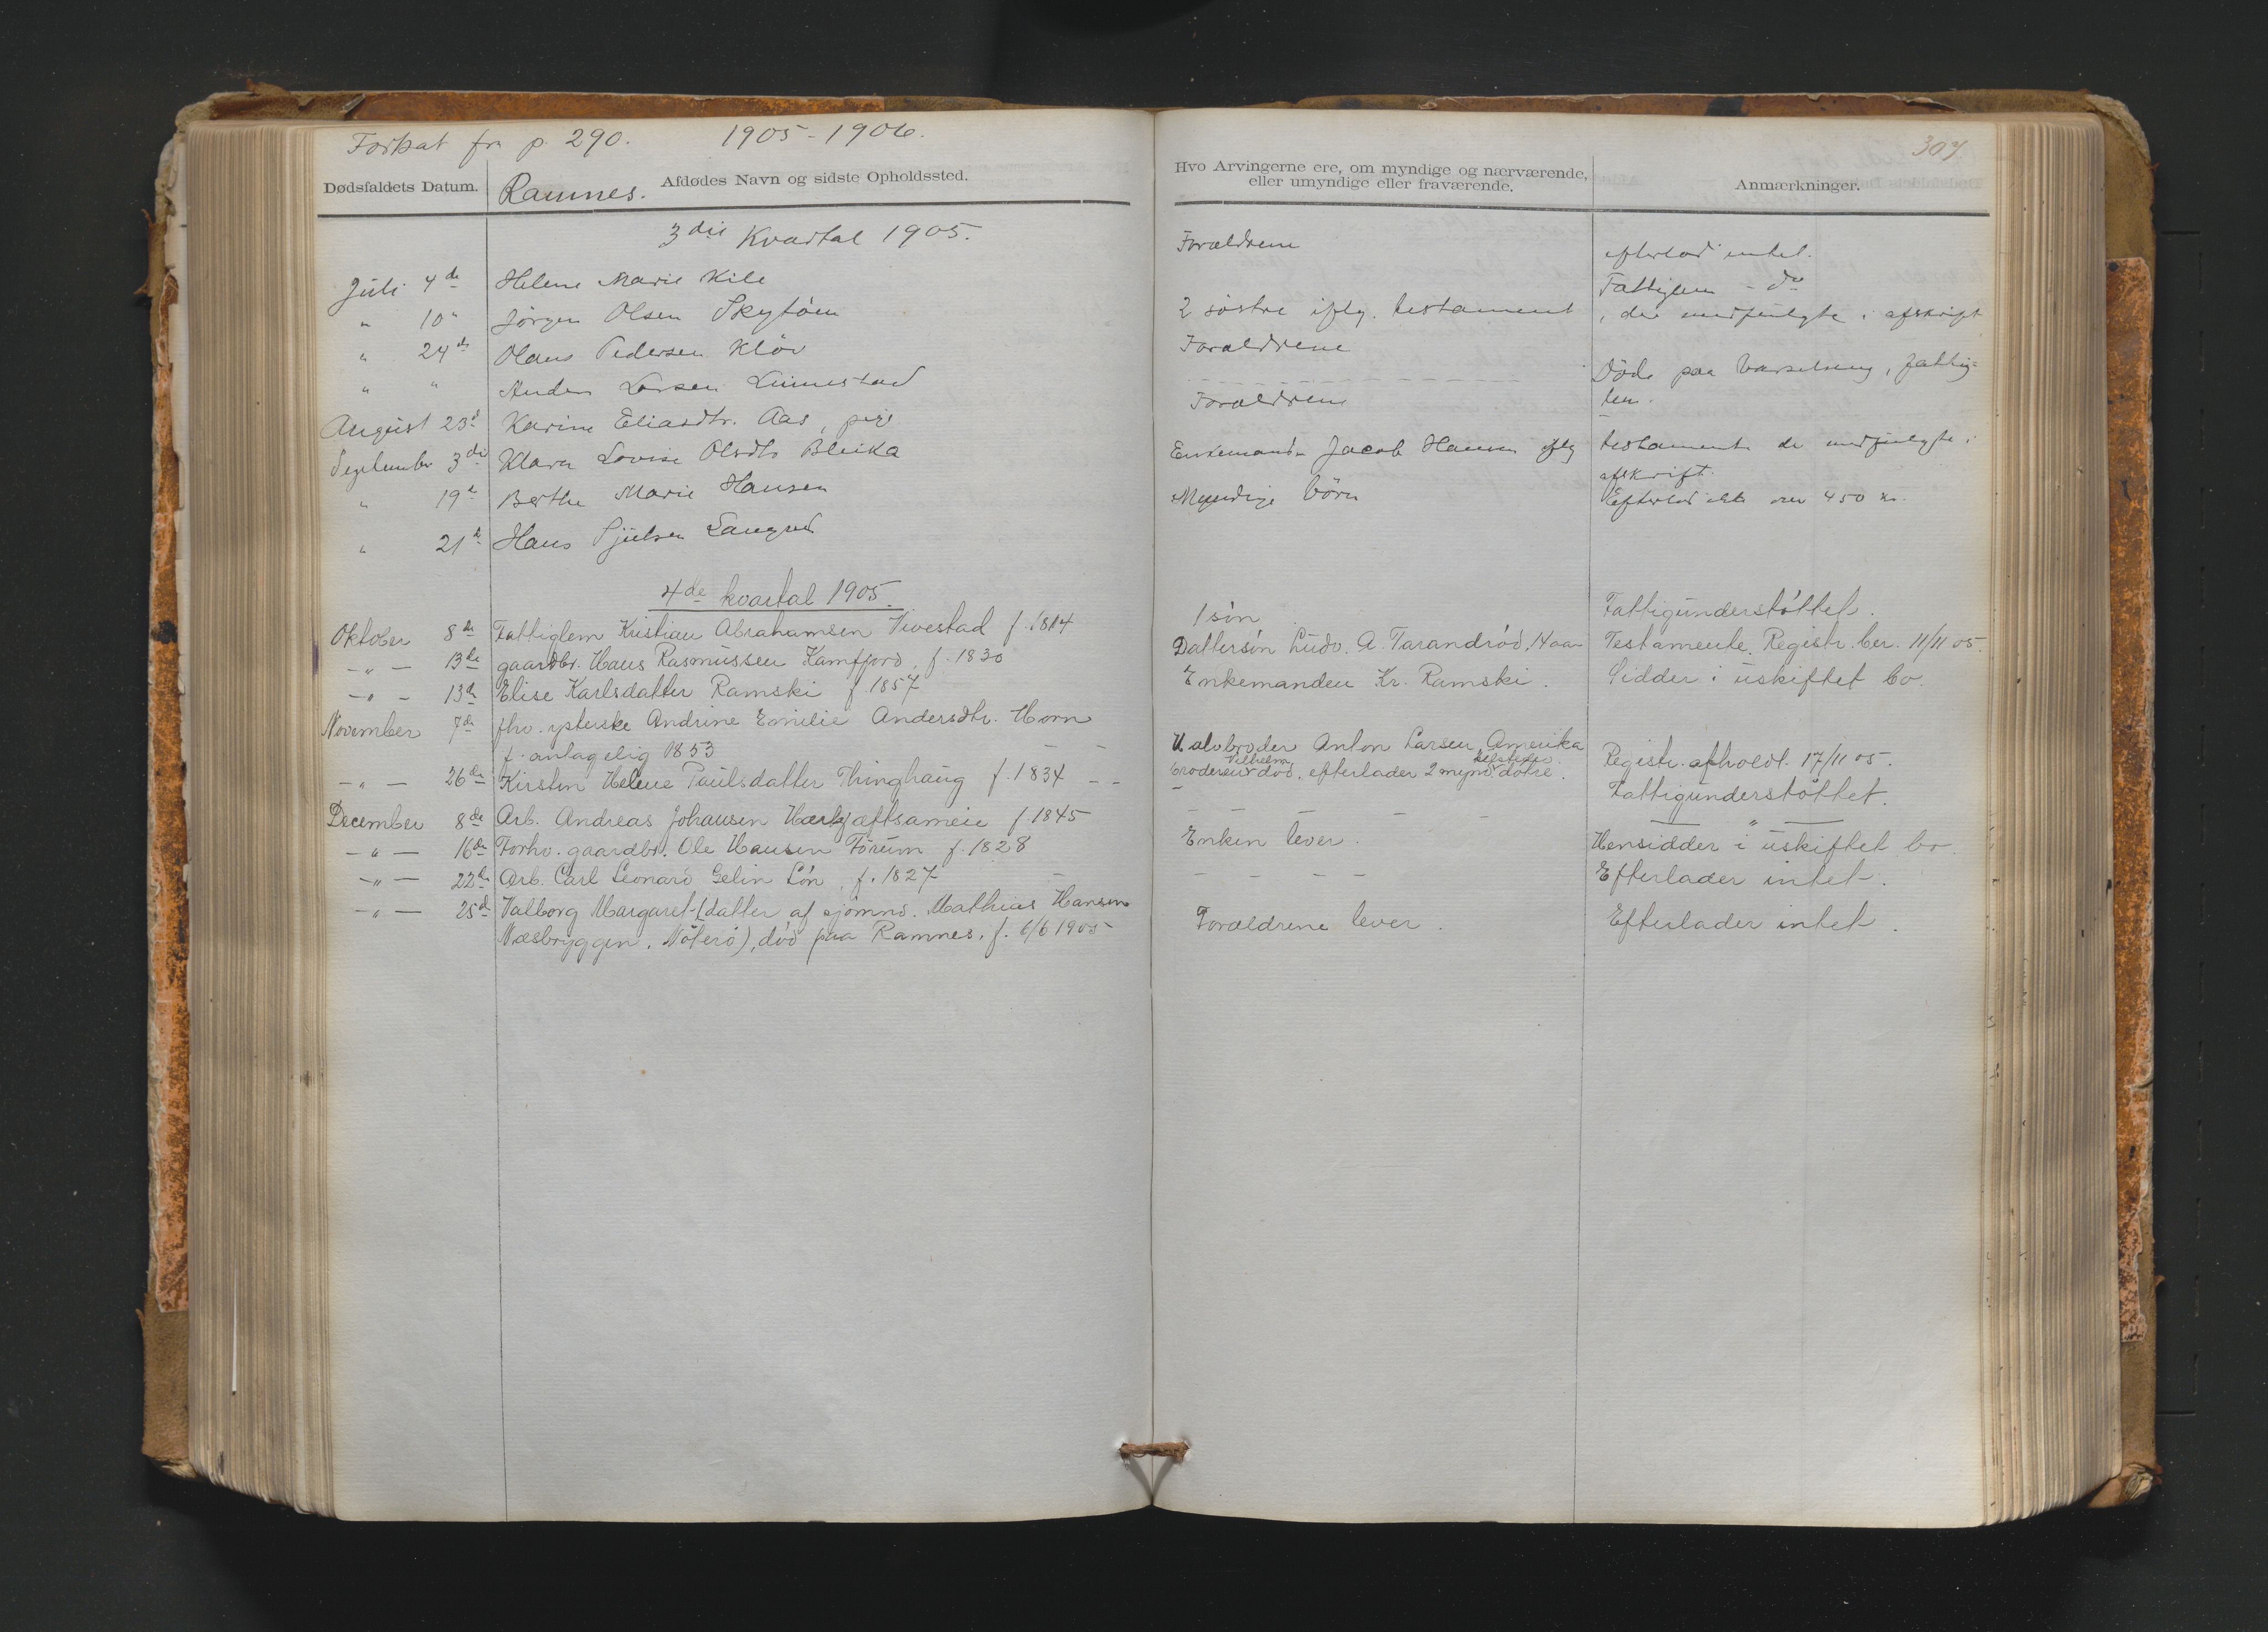 Fortsat fr p. 290. 1905-1906.
Dødsfaldets Datum.
Afdødes Navn og sidste Opholdssted.
Ramnes.
3die Kvartal 1905.
Juli 4de Helene Marie Kile
" 10" Jörgen Olsen
" 24de Olaus Pedersen Klöv
" " Anders Larsen Linnestad
August 23d Karine Eliasdtr. Aas, pige
September 3die Klara Lovise Olsdtr Bleika
" 19de Berthe Marie Hansen
" 21de Hans Sjulsen Langrud
4de kvartal 1905.
Oktober 8de Fattiglem Kristian Abrahamsen Vivestad f. 1814
-"- 13de gaardbr. Hans Rasmussen Kamfjord, f. 1830
-"- 13de Elise Karlsdatter Ramski f. 1857
November 7de fhv. ysterske Andrine Emilie Andersdtr. Horn
f. antagelig 1853 - -
-"- 26de Kirsten Helene Paulsdatter Thinghaug f. 1834 - -
December 8de Arb. Andreas Johansen f. 1845
-"- 16de Forhv. gaardbr. Ole Hansen Forum f. 1828
-"- 22de Arb. Carl Leonard Gelin Lön, f. 1827 -
-"- 25de Valborg Margaret (datter af sjömnd. Mathias Hansen
Næsbryggen, Nöterö), död paa Ramnes, f. 6/6 1905
307
Hvo Arvingerne ere, om myndige og nærværende,
eller umyndige eller fraværende.
Anmærkninger.
Forældrene
efterlod intet.
Fattiglem - do
2 söstre iflg. testament, der medfulgte i afskrift
Forældrene
Döde paa , fattig=
lem.
Forældrene
Enkemanden Jacob Hansen iflg testament der medfulgte i
afskrift.
Myndige börn
Efterlod ikke over 450 kr.
1 sön
Fattigunderstöttet.
Dattersön Ludv. A. Tarandröd, 14 aar
Testamente. Registr. ber. 11/11 05.
Enkemanden Kr. Ramski.
Sidder i uskiftet bo.
Halvbroder Anton Larsen, Amerika
Vilhelm
broderen död, efterlader 2 mynd. dötre.
Registr. afholdt 17/11 05.
Fattigunderstöttet.
- - - - -
— " —
Enken lever.
Hensidder i uskiftet bo.
- - - - -
Efterlader intet.
Forældrene lever.
Efterlader intet.